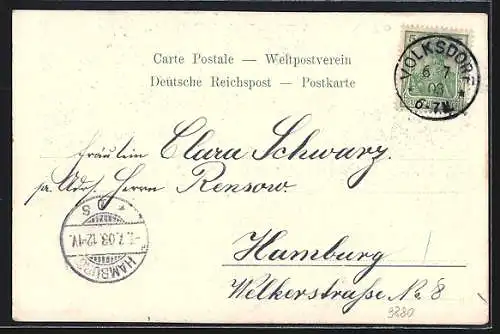 Carte Postale — Weltpostverein
Deutsche Reichspost — Postkarte
5
VOLKSDORF
6 7
03
6-7N.
Fräulein Clara Schwarz.
pr. Adr. Herrn Rensow.
HAMBURG
-7.7.03.12-1V.
Hamburg
Welkerstraße No 8
3280